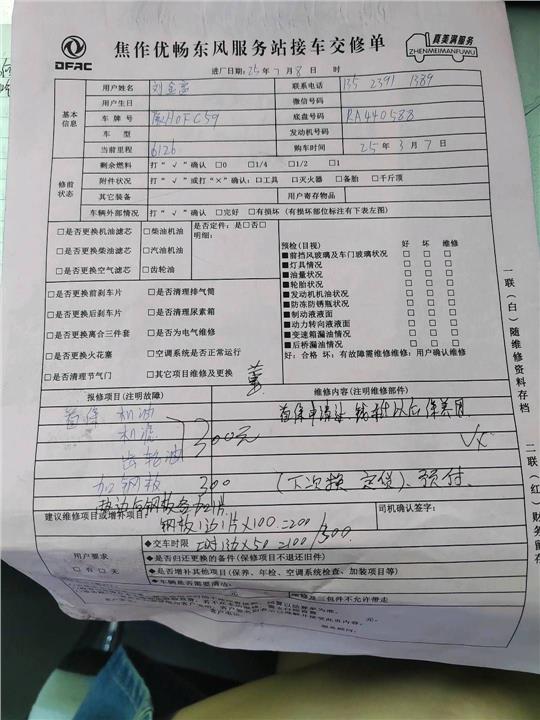 DFAC
焦作优畅东风服务站接车交修单
真美满服务
ZHENMEIMANFUWU
进厂日期：25年7月8日 时
基本信息
用户姓名 刘金富 联系电话 135 2391 1389
用户生日 微信号码
车牌号 豫H0FC59 底盘号码 RA440588
车型 发动机号码
当前里程 6126 购车时间 25年3月7日
修前状态
剩余燃料 打“√”确认 □0 □1/4 □1/2 □1
附件状况 打“√”或打“×”确认：□工具 □灭火器 □备胎 □千斤顶
其它装备 用户寄存物品
车辆外部情况 打“√”确认 □完好 □有损坏（有损坏部位标注有下表左图）
□是否更换机油滤芯 □柴油机油
□是否更换柴油滤芯 □汽油机油
□是否更换空气滤芯 □齿轮油
是否定件：是□否□
明细：
□是否更换前刹车片 □是否清理排气筒
□是否更换后刹车片 □是否清理尿素箱
□是否更换离合三件套 □是否为电气维修
□是否更换火花塞 □空调系统是否正常运行
□是否清理节气门 □其它项目维修及更换
预检(目视) 好 坏 维修
■前挡风玻璃及车门玻璃状况 □ □ □
■灯具情况 □ □ □
■油量状况 □ □ □
■轮胎状况 □ □ □
■发动机机油状况 □ □ □
■防冻防锈瓶状况 □ □ □
■制动液液面 □ □ □
■动力转向液液面 □ □ □
■变速箱漏油情况 □ □ □
■后桥漏油情况 □ □ □
好：合格 坏：有故障需维修维修：用户确认维修
报修项目(注明故障) 维修内容(注明维修部件)
首保 机油
机滤
齿轮油
300元
首保申请
加钢板 300 (下次换 ) 预付
钢板 1边1片×100=200
建议维修项目或增补项目 司机确认签字：
用户要求
□有□无
◆交车时限 1边×50=100 /300
◆是否归还更换的备件(保修项目不退还旧件)
◆是否增补其他项目(保养、年检、空调系统检查、加装项目等)
◆车辆是否需要清洁：
维修及三包件不允许带走
一联（白）随维修资料存档
二联（红）财务留存